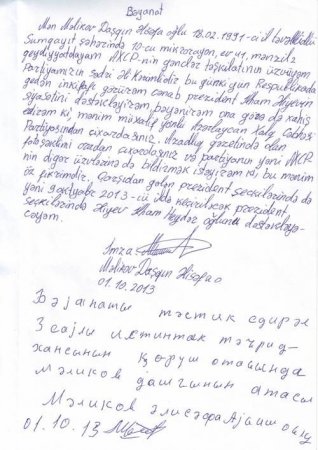 Bəyanat
Mən Məlikov Daşqın Əlisəfa oğlu 18.02.1991-ci il təvəllüdlü
Sumqayıt şəhərində 10-cu mikrorayon, ev 41, mənzil 2
qeydiyyatdayam AXCP-nin gənclər təşkilatının üzvüyəm
Partiyamızın sədri Ə. Kərimlidir bu günki gün Respublikada
gedən inkişafı görürəm cənab prezident İlham Əliyevin
siyasətini dəstəkləyirəm, bəyənirəm ona görə də xahiş
edirəm ki, mənim müxalif yönlü Azərbaycan Xalq Cəbhəsi
Partiyasından çıxardasınız, Azadlıq qəzetində olan
fotoşəklimi oradan çıxardasınız və partiyanın yəni AXCP-
nin digər üzvlərinə də bildirmək istəyirəm ki, bu mənim
öz fikrimdir. Qarşıdan gələn prezident seçkilərində də
yəni 9 oktyabr 2013-cü ildə keçiriləcək prezident
seçkilərində Əliyev İlham Heydər oğlunu dəstəkləyə-
cəyəm.
İmza
Məlikov Daşqın Əlisəfa o
01.10.2013
Бәјанаты тәстик едирәм
3 сајлы истинтаг тәчрид-
хансынын ҝөрүш отағында
Мәликов Дашгынын атасы
Мәликов Әлисәфа
01.10.13